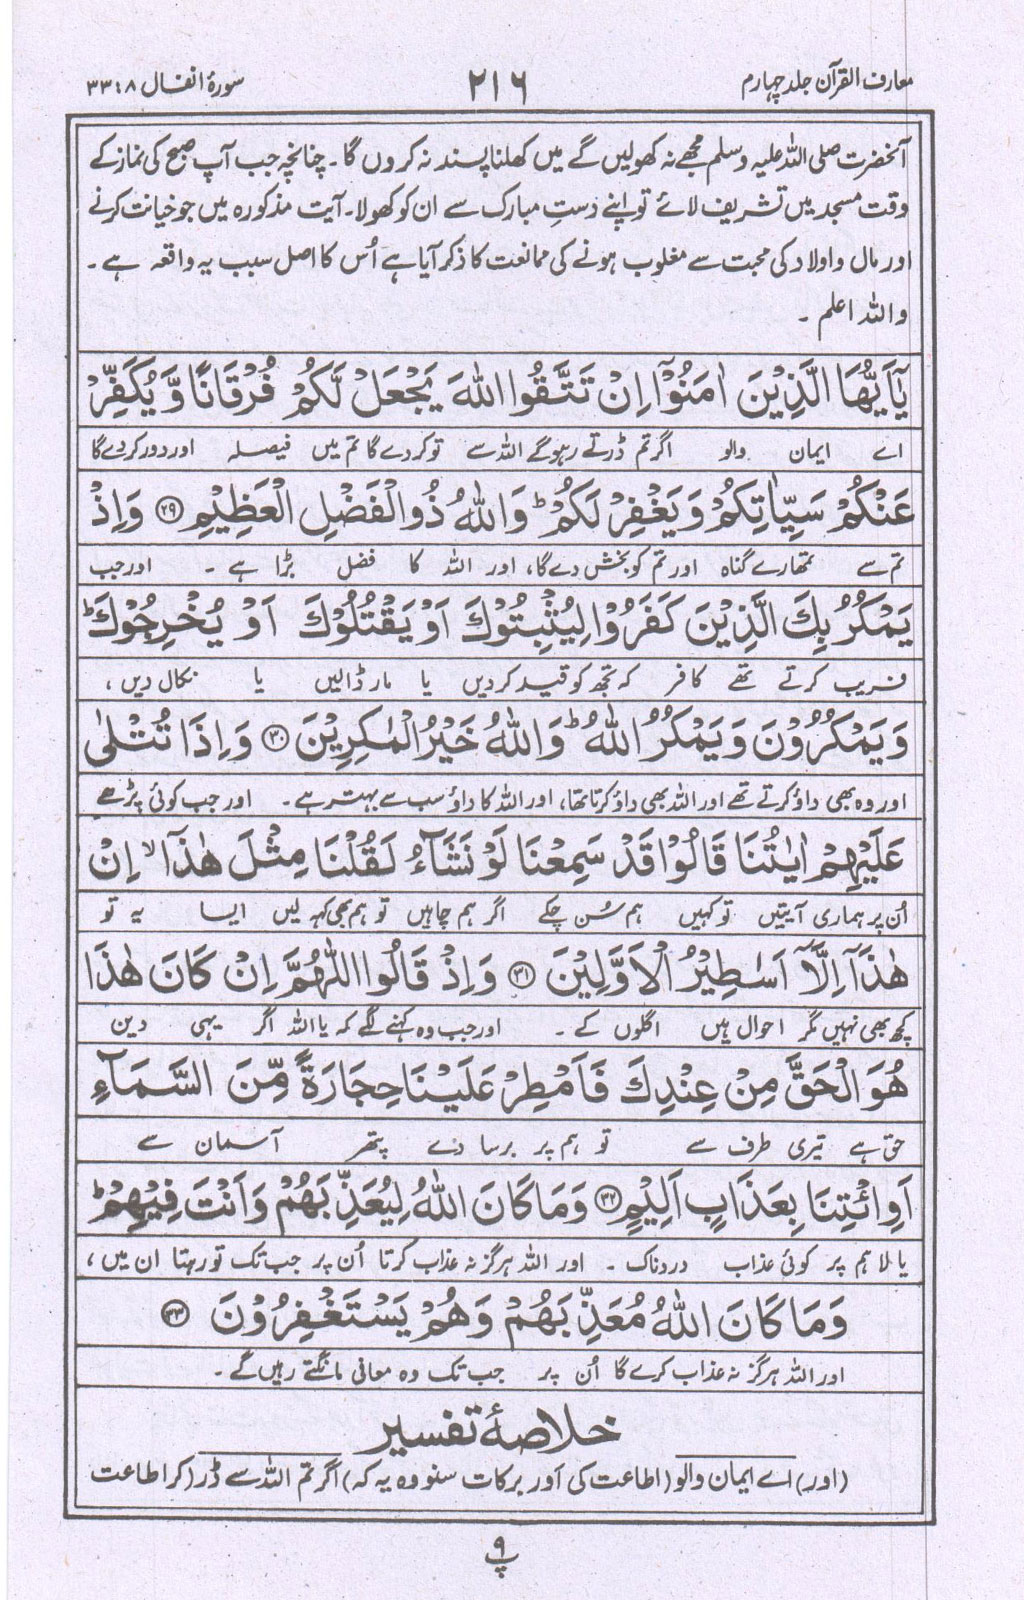 معارف القرآن جلد چہارم ۲۱۶ سورۂ انفال ۸ : ۳۳
آنحضرت صلی اللہ علیہ وسلم مجھے نہ کھولیں گے میں کھلنا پسند نہ کروں گا۔ چنانچہ جب آپ صبح کی نماز کے
وقت مسجد میں تشریف لائے تو اپنے دستِ مبارک سے ان کو کھولا۔ آیت مذکورہ میں جو خیانت کرنے
اور مال و اولاد کی محبت سے مغلوب ہونے کی ممانعت کا ذکر آیا ہے اُس کا اصل سبب یہ واقعہ ہے۔
واللہ اعلم ۔
يٰٓاَيُّهَا الَّذِيْنَ اٰمَنُوْٓا اِنْ تَتَّقُوا اللّٰهَ يَجْعَلْ لَّكُمْ فُرْقَانًا وَّ يُكَفِّرْ
اے ایمان والو اگر تم ڈرتے رہو گے اللہ سے تو کر دے گا تم میں فیصلہ اور دور کر دے گا
عَنْكُمْ سَيِّاٰتِكُمْ وَ يَغْفِرْ لَكُمْ ؕ وَ اللّٰهُ ذُو الْفَضْلِ الْعَظِيْمِ ﴿۲۹﴾ وَ اِذْ
تم سے تمھارے گناہ اور تم کو بخش دے گا، اور اللہ کا فضل بڑا ہے ۔ اور جب
يَمْكُرُ بِكَ الَّذِيْنَ كَفَرُوْا لِيُثْبِتُوْكَ اَوْ يَقْتُلُوْكَ اَوْ يُخْرِجُوْكَ ؕ
فریب کرتے تھے کافر کہ تجھ کو قید کر دیں یا مار ڈالیں یا نکال دیں ،
وَ يَمْكُرُوْنَ وَ يَمْكُرُ اللّٰهُ ؕ وَ اللّٰهُ خَيْرُ الْمٰكِرِيْنَ ﴿۳۰﴾ وَ اِذَا تُتْلٰى
اور وہ بھی داؤ کرتے تھے اور اللہ بھی داؤ کرتا تھا، اور اللہ کا داؤ سب سے بہتر ہے۔ اور جب کوئی پڑھے
عَلَيْهِمْ اٰيٰتُنَا قَالُوْا قَدْ سَمِعْنَا لَوْ نَشَآءُ لَقُلْنَا مِثْلَ هٰذَآ ۙ اِنْ
اُن پر ہماری آیتیں تو کہیں ہم سُن چکے اگر ہم چاہیں تو ہم بھی کہہ لیں ایسا یہ تو
هٰذَآ اِلَّآ اَسَاطِيْرُ الْاَوَّلِيْنَ ﴿۳۱﴾ وَ اِذْ قَالُوا اللّٰهُمَّ اِنْ كَانَ هٰذَا
کچھ بھی نہیں مگر احوال ہیں اگلوں کے ۔ اور جب وہ کہنے لگے کہ یا اللہ اگر یہی دین
هُوَ الْحَقَّ مِنْ عِنْدِكَ فَاَمْطِرْ عَلَيْنَا حِجَارَةً مِّنَ السَّمَآءِ
حق ہے تیری طرف سے تو ہم پر برسا دے پتھر آسمان سے
اَوِ ائْتِنَا بِعَذَابٍ اَلِيْمٍ ﴿۳۲﴾ وَ مَا كَانَ اللّٰهُ لِيُعَذِّبَهُمْ وَ اَنْتَ فِيْهِمْ ؕ
یا لا ہم پر کوئی عذاب دردناک ۔ اور اللہ ہرگز نہ عذاب کرتا اُن پر جب تک تو رہتا ان میں ،
وَ مَا كَانَ اللّٰهُ مُعَذِّبَهُمْ وَ هُمْ يَسْتَغْفِرُوْنَ ﴿۳۳﴾
اور اللہ ہرگز نہ عذاب کرے گا اُن پر جب تک وہ معافی مانگتے رہیں گے ۔
خلاصۂ تفسیر
(اور) اے ایمان والو (اطاعت کی اور برکات سنو وہ یہ کہ) اگر تم اللہ سے ڈر (کر اطاعت
پ ۹